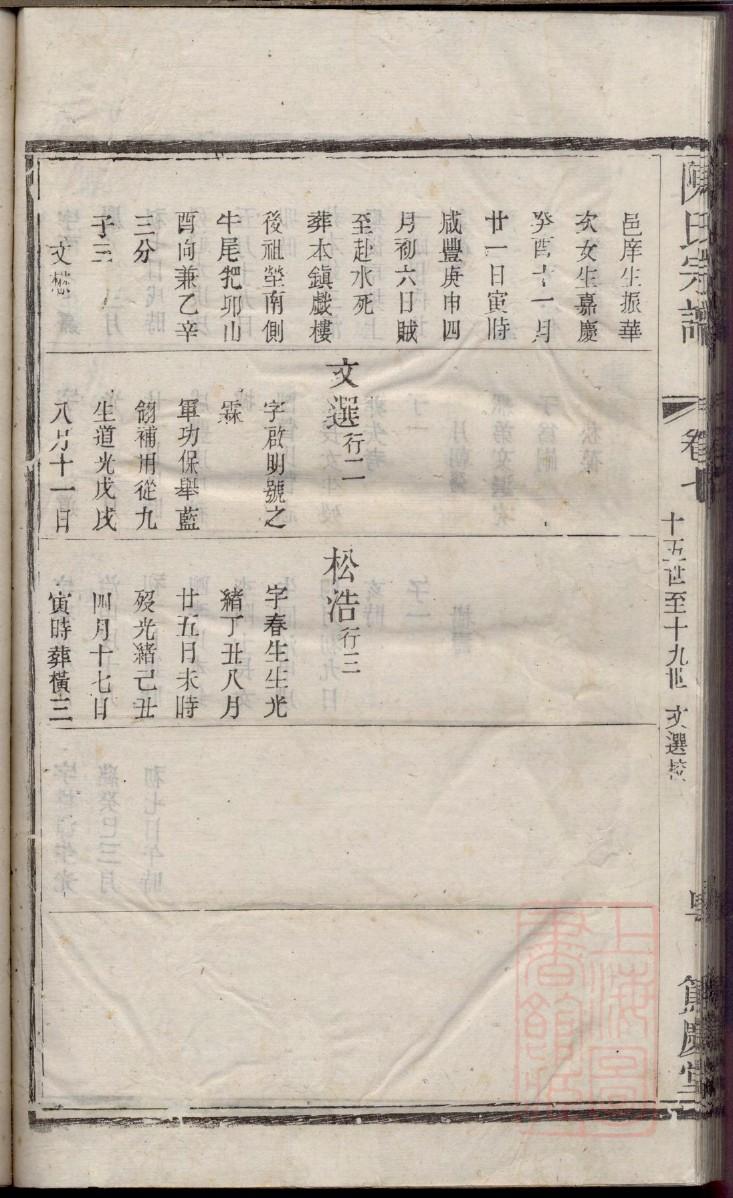 陳氏宗譜
卷七
十五世至十九世 文選校
篤慶堂
邑庠生振華
次女生嘉慶
癸酉十一月
廿一日寅時
咸豐庚申四
月初六日賊
至赴水死
葬本鎮戲樓
後祖塋南側
牛尾把邱山
酉向兼乙辛
三分
子三
文懋
文選行二
字啟明號之
霖
軍功保舉藍
翎補用從九
生道光戊戌
八月十一日
松浩行三
字春生生光
緒丁丑八月
廿五日未時
歿光緒己丑
四月十七日
寅時葬橫三
上海圖書館藏